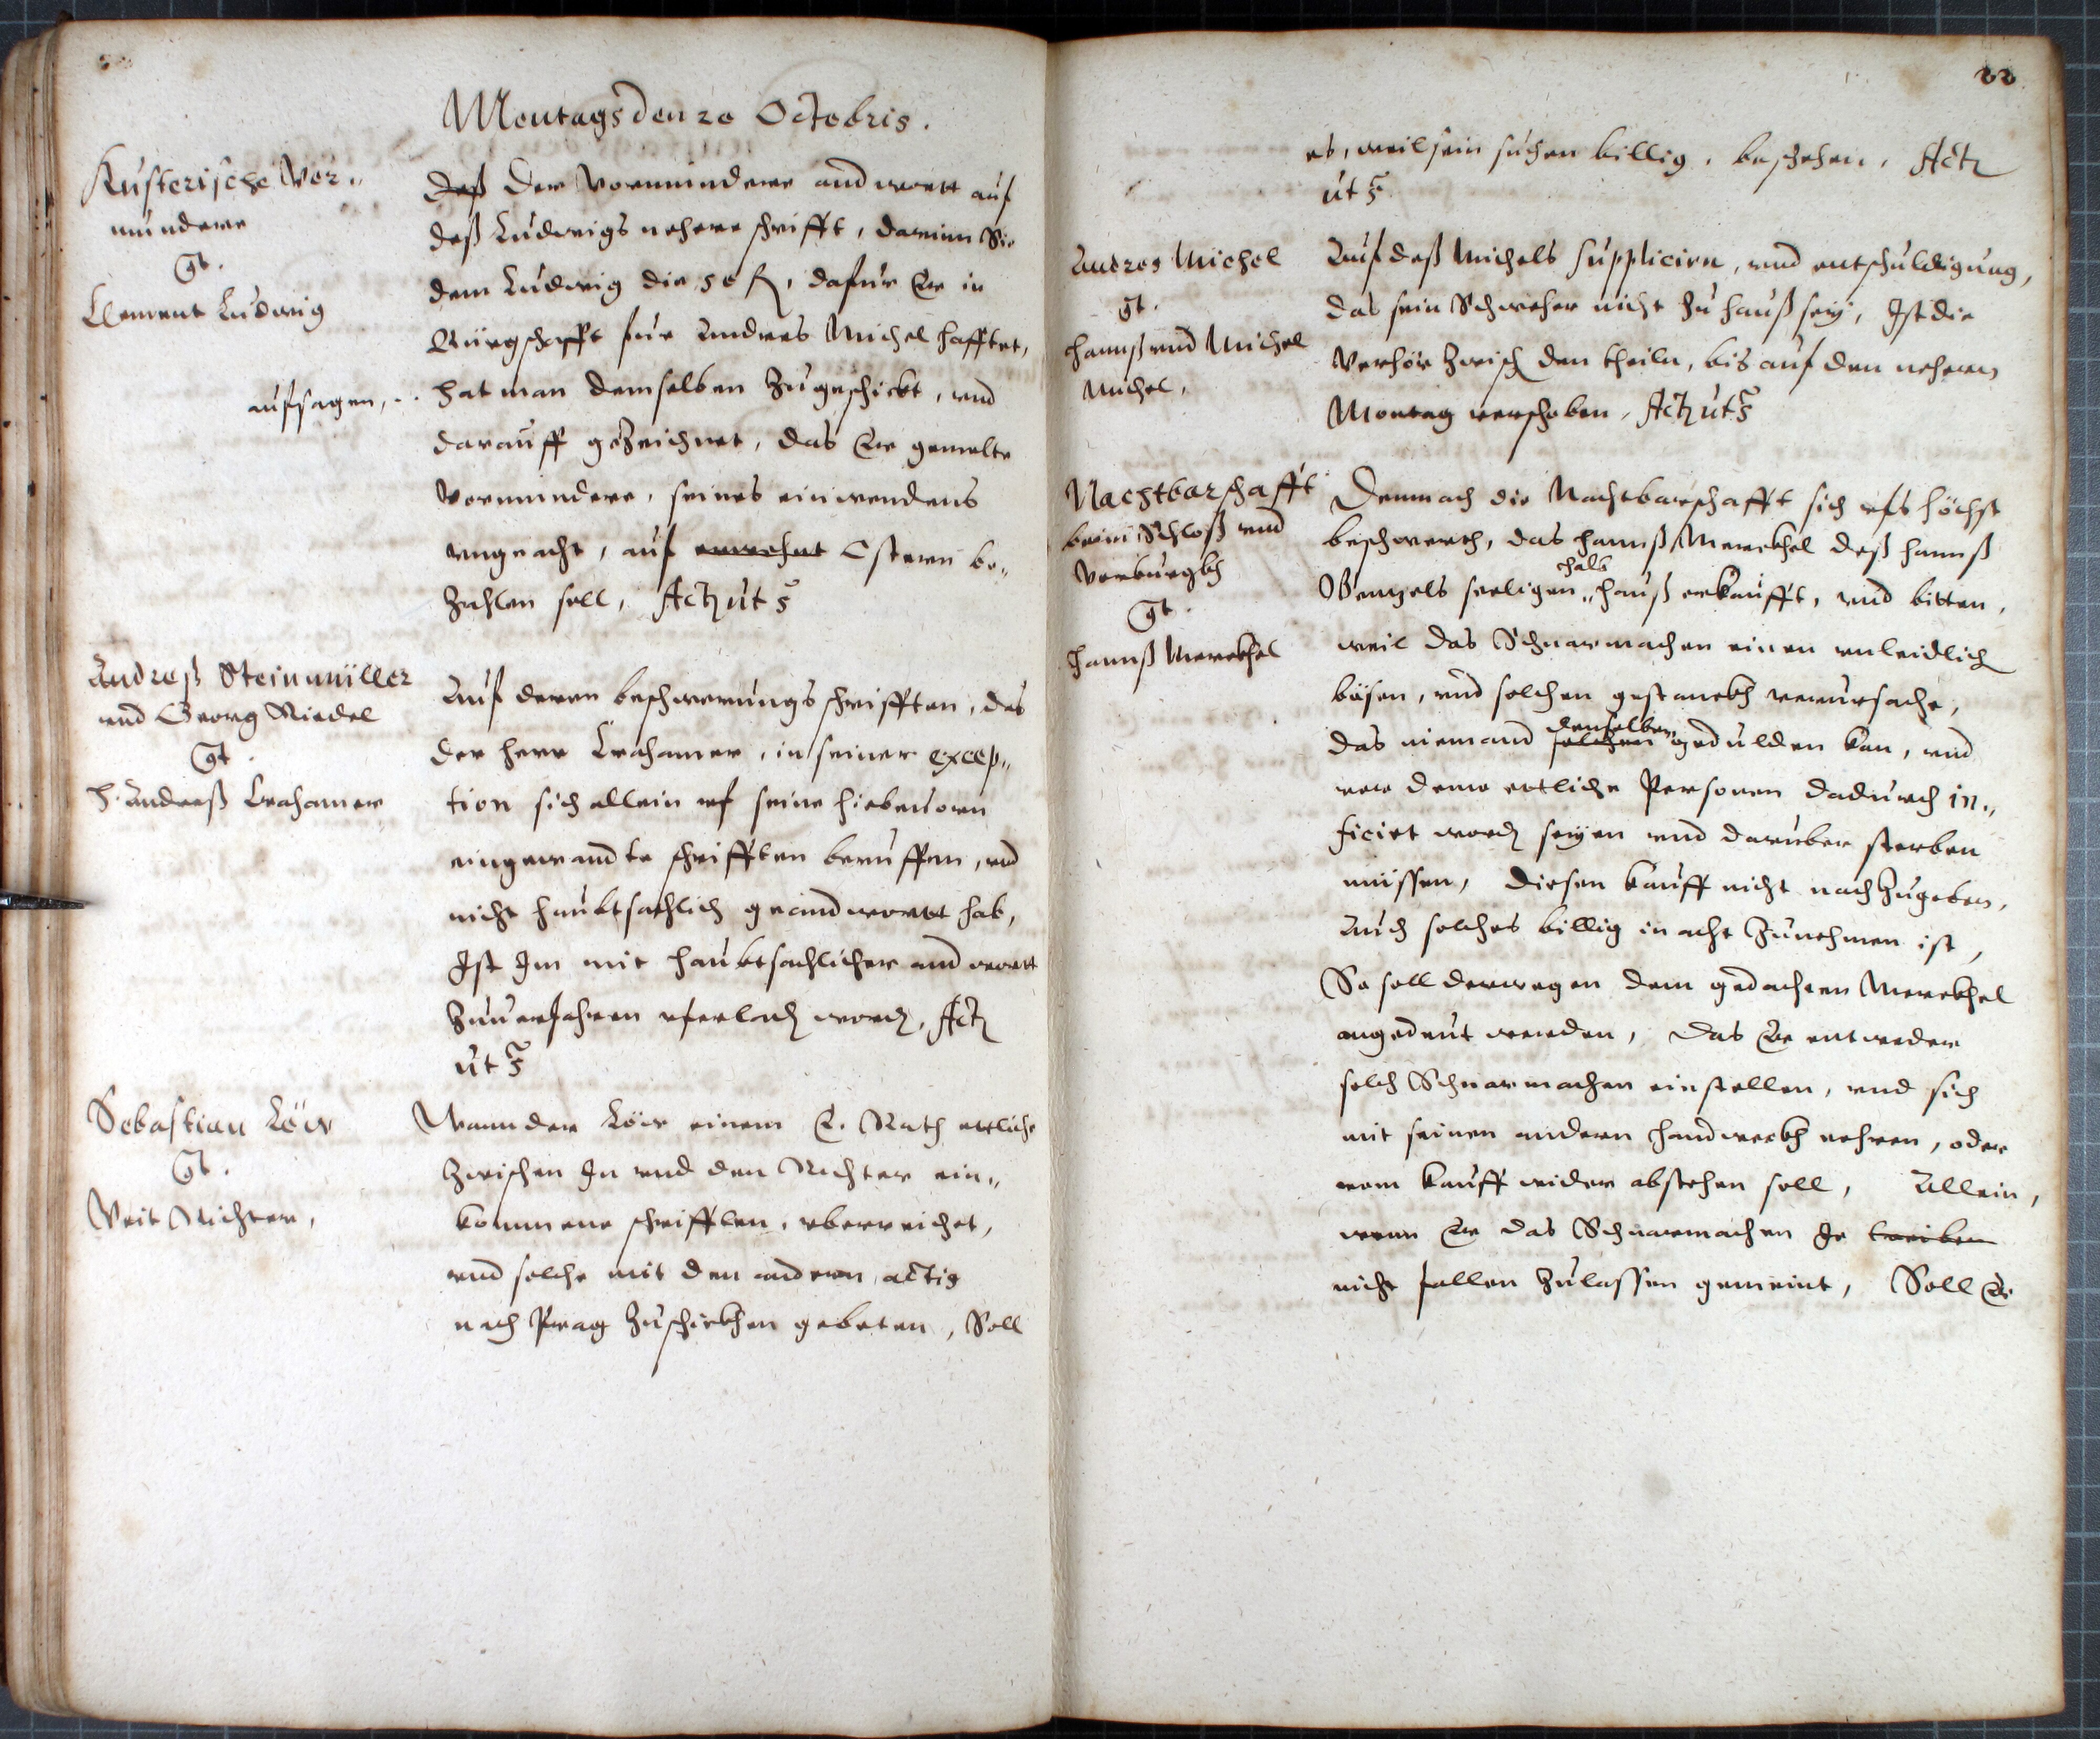 Montags den 20 Octobris.
Kusterische Vor„
mundere
gt.
Clement Ludwig
aufsagen,
deß Der Vormundere andwortt auf
deß Ludwigs nehere schrifft, darinn Sie
dem Ludwig die 50 fl, dafur Er in
Bürgschafft fur Andres Michel hafftet,
hat man demselben zugeschickt, vnd
darauff gezeichnet, das Er gemelte
Vormundere, seines einwendens
vngeacht, auf Ostern be„
zahlen soll, Act ut s
Andreß Steinmüller
vnd Georg Riedel
gt.
H. Andreß Crahamer
Auf deren beschwerungs schrifften, das
der herr Crahamer, in seiner excep„
tion sich allein vf seine hiebeuorn
eingewandte schrifften beruffen, vnd
nicht haubtsachlich geandwortt hab,
Ist Im mit haubtsachlicher andwortt
zuuerfahren vferlad word, Act
ut s
Sebastian Löw
gt.
Veit Richter,
Wann der Löw einem E. Rath ettliche
zwischen Im vnd den Richter ein„
kommene schrifften, vberreichet,
vnd solche mit den andern actis
nach Prag zuschickhen gebeten, Soll
22
es, weil sein suchen billig, beschehen, Act
ut s
Andres Michel
gt.
Hannß vnd Michel
Michel,
Auf deß Michels suppliciren, vnd entschuldigung,
das sein Schweher nicht zu hauß sey, Ist die
Verhör zwisch den theiln, bis auf den nehern
Montag verschoben, Act ut s
Nachtbarschafft
beim Schloß vnd
Vorburgkh
gt.
Hannß Merckhel
Demnach die Nachtbarschafft sich vfs höchst
beschwerth, das Hannß Merckhel deß Hannß
Wenzels seeligen halb hauß erkaufft, vnd bitten,
weil das Schnarmachen einen vnleidlich
bösen, vnd solchen gestanckh verursache,
das niemand solchen denselben gedulden kan, vnd
vor deme ettliche Personen dadurch in„
ficirt word seyen vnd daruber sterben
müssen, diesen kauff nicht nachzugeben,
Auch solches billig in acht zunehmen ist,
So soll derwegen dem gedachten Merckhel
angedeut werden, das Er entweder
solch Schnarmachen einstellen, vnd sich
mit seinen andern handwerckh nehren, oder
vom kauff wider abstehen soll, Allein,
wenn Er das Schnarmachen Je treiben
nicht fallen zulassen gemeint, Soll Er